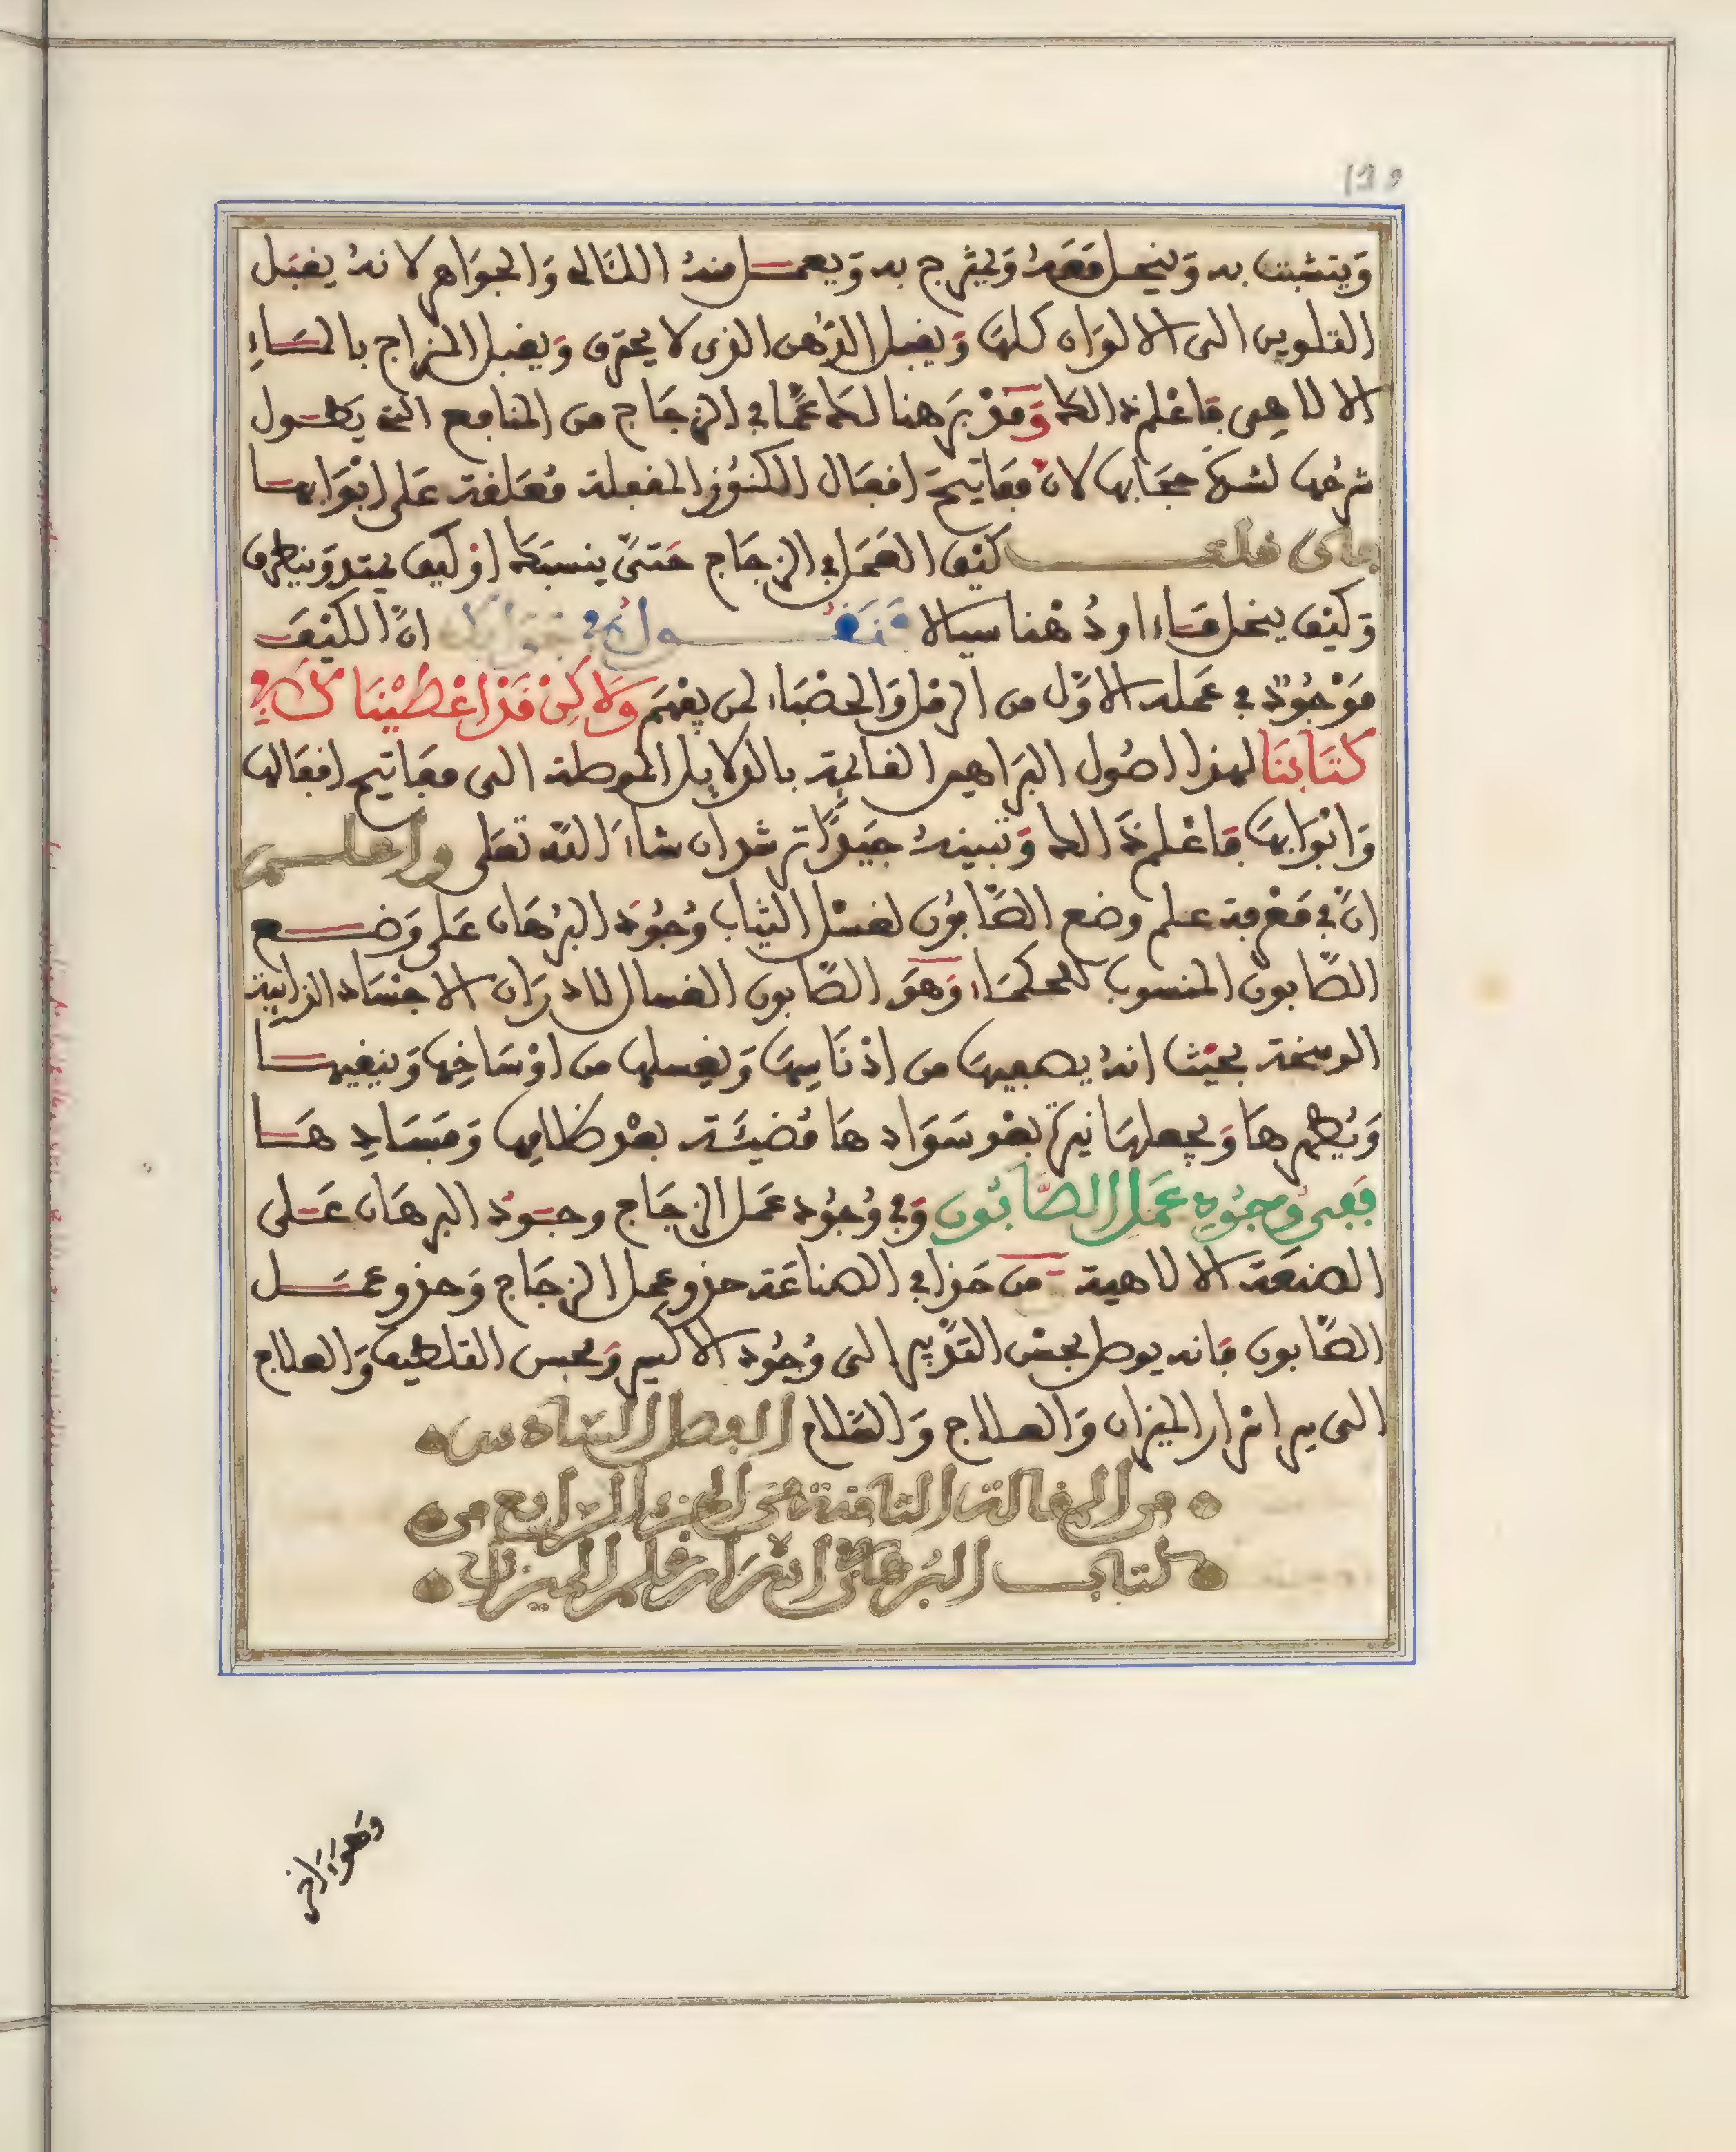 وَيتشبث به وَينحل مَعَهُ وَيمتزج به وَيعمل منهُ اللئالي وَالجوَاهر لانهُ يقبَل
التلوين الى الالوَان كلهَا وَيقبل الدُّهن الذى لا يحترق وَيقبل المزاج بالمَاءِ
الالاهي فاعْلم ذالك وَقَدْ بَرهنا لك عمَّا في الزجَاج من المنافع التي يَطُول
شرحُها لشدة حجَابها لان مفَاتيحَ اقفَال الكنُوز المقفلة مُعَلقة عَلى ابْوَابها
فان قلت كيْف العَمَل في الزجَاج حَتىَّ ينسبك اوْ كيف يمتد وَينطرق
وَكيْف ينحل مَاء اودُهْنا سيالا فَنَقُول في جَوَابك انَّ الكيْفَ
مَوْجُودٌ في عَمله الاوَّل من الرمْل وَالحصْبَاء لمن يفْهَم وَلَاكِنْ قَدْ اعْطَيْنَاكَ في
كتَابنَا لهذا اصُول البرَاهين القائمة بالدلايل الموصلة الى مفَاتيح اقفَالها
وَابْوَابهَا فاعْلم ذَالك وَتبينهُ جَيّدًا ترشد ان شاءَ اللّه تعَلى واعلم
انَّ في مَعْرفة علم وضع الصَّابُون لغسْل الثياب وُجُودَ البُرْهَان عَلى وَضع
الصَّابونْ المنسوب للحكمَاء وَهوَ الصَّابون الغسال للادرَان الاجْسَاد الذايبة
الوسخة بحيْث انهُ يصفيهَا من ادْنَاسِهَا وَيغسلها من اوْسَاخِهَا وَينقيها
وَيُطهرهَا وَيجعلهَا نيرَةً بعْد سَوَادهَا مُضيئَة بعْد ظلامِها وَفسَادِهَا
فَفي وُجُودِ عَمَل الصَّابُون وَفي وُجُود عَمَل الزجَاج وجُودُ البرهَان عَلى
الصنعَة الالاهية من حَذا في الصناعَة حذو عمل الزجَاج وَحذو عمَل
الصَّابون فانه يوصل بحسْن التدْبير الى وُجُود الاكسير وَبحسن التلطيف وَالعلاج
الى سر اسْرار الميزان وَالعلاج وَالسَّلام الفصل السَّادس
من المقالة الثامنة من الجزء الرابع من
كتاب البُرهَان في اسْرَار علم الميزان
وَهوَ اَرَاض